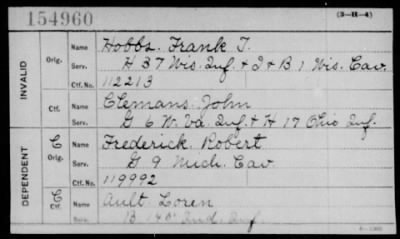 154960 (3-H-4)
INVALID
Orig. Name Hobbs, Frank T.
Serv. H 37 Wis. Inf. & I & B 1 Wis. Cav.
Ctf. No. 112213
Ctf. Name Clemans, John
Serv. G 6 W. Va. Inf. & H 17 Ohio Inf.
DEPENDENT
C Orig. Name Frederick, Robert
Serv. G 9 Mich. Cav.
Ctf. No. 119992
C Ctf. Name Ault, Loren
Serv. B 140 Ind. Inf.